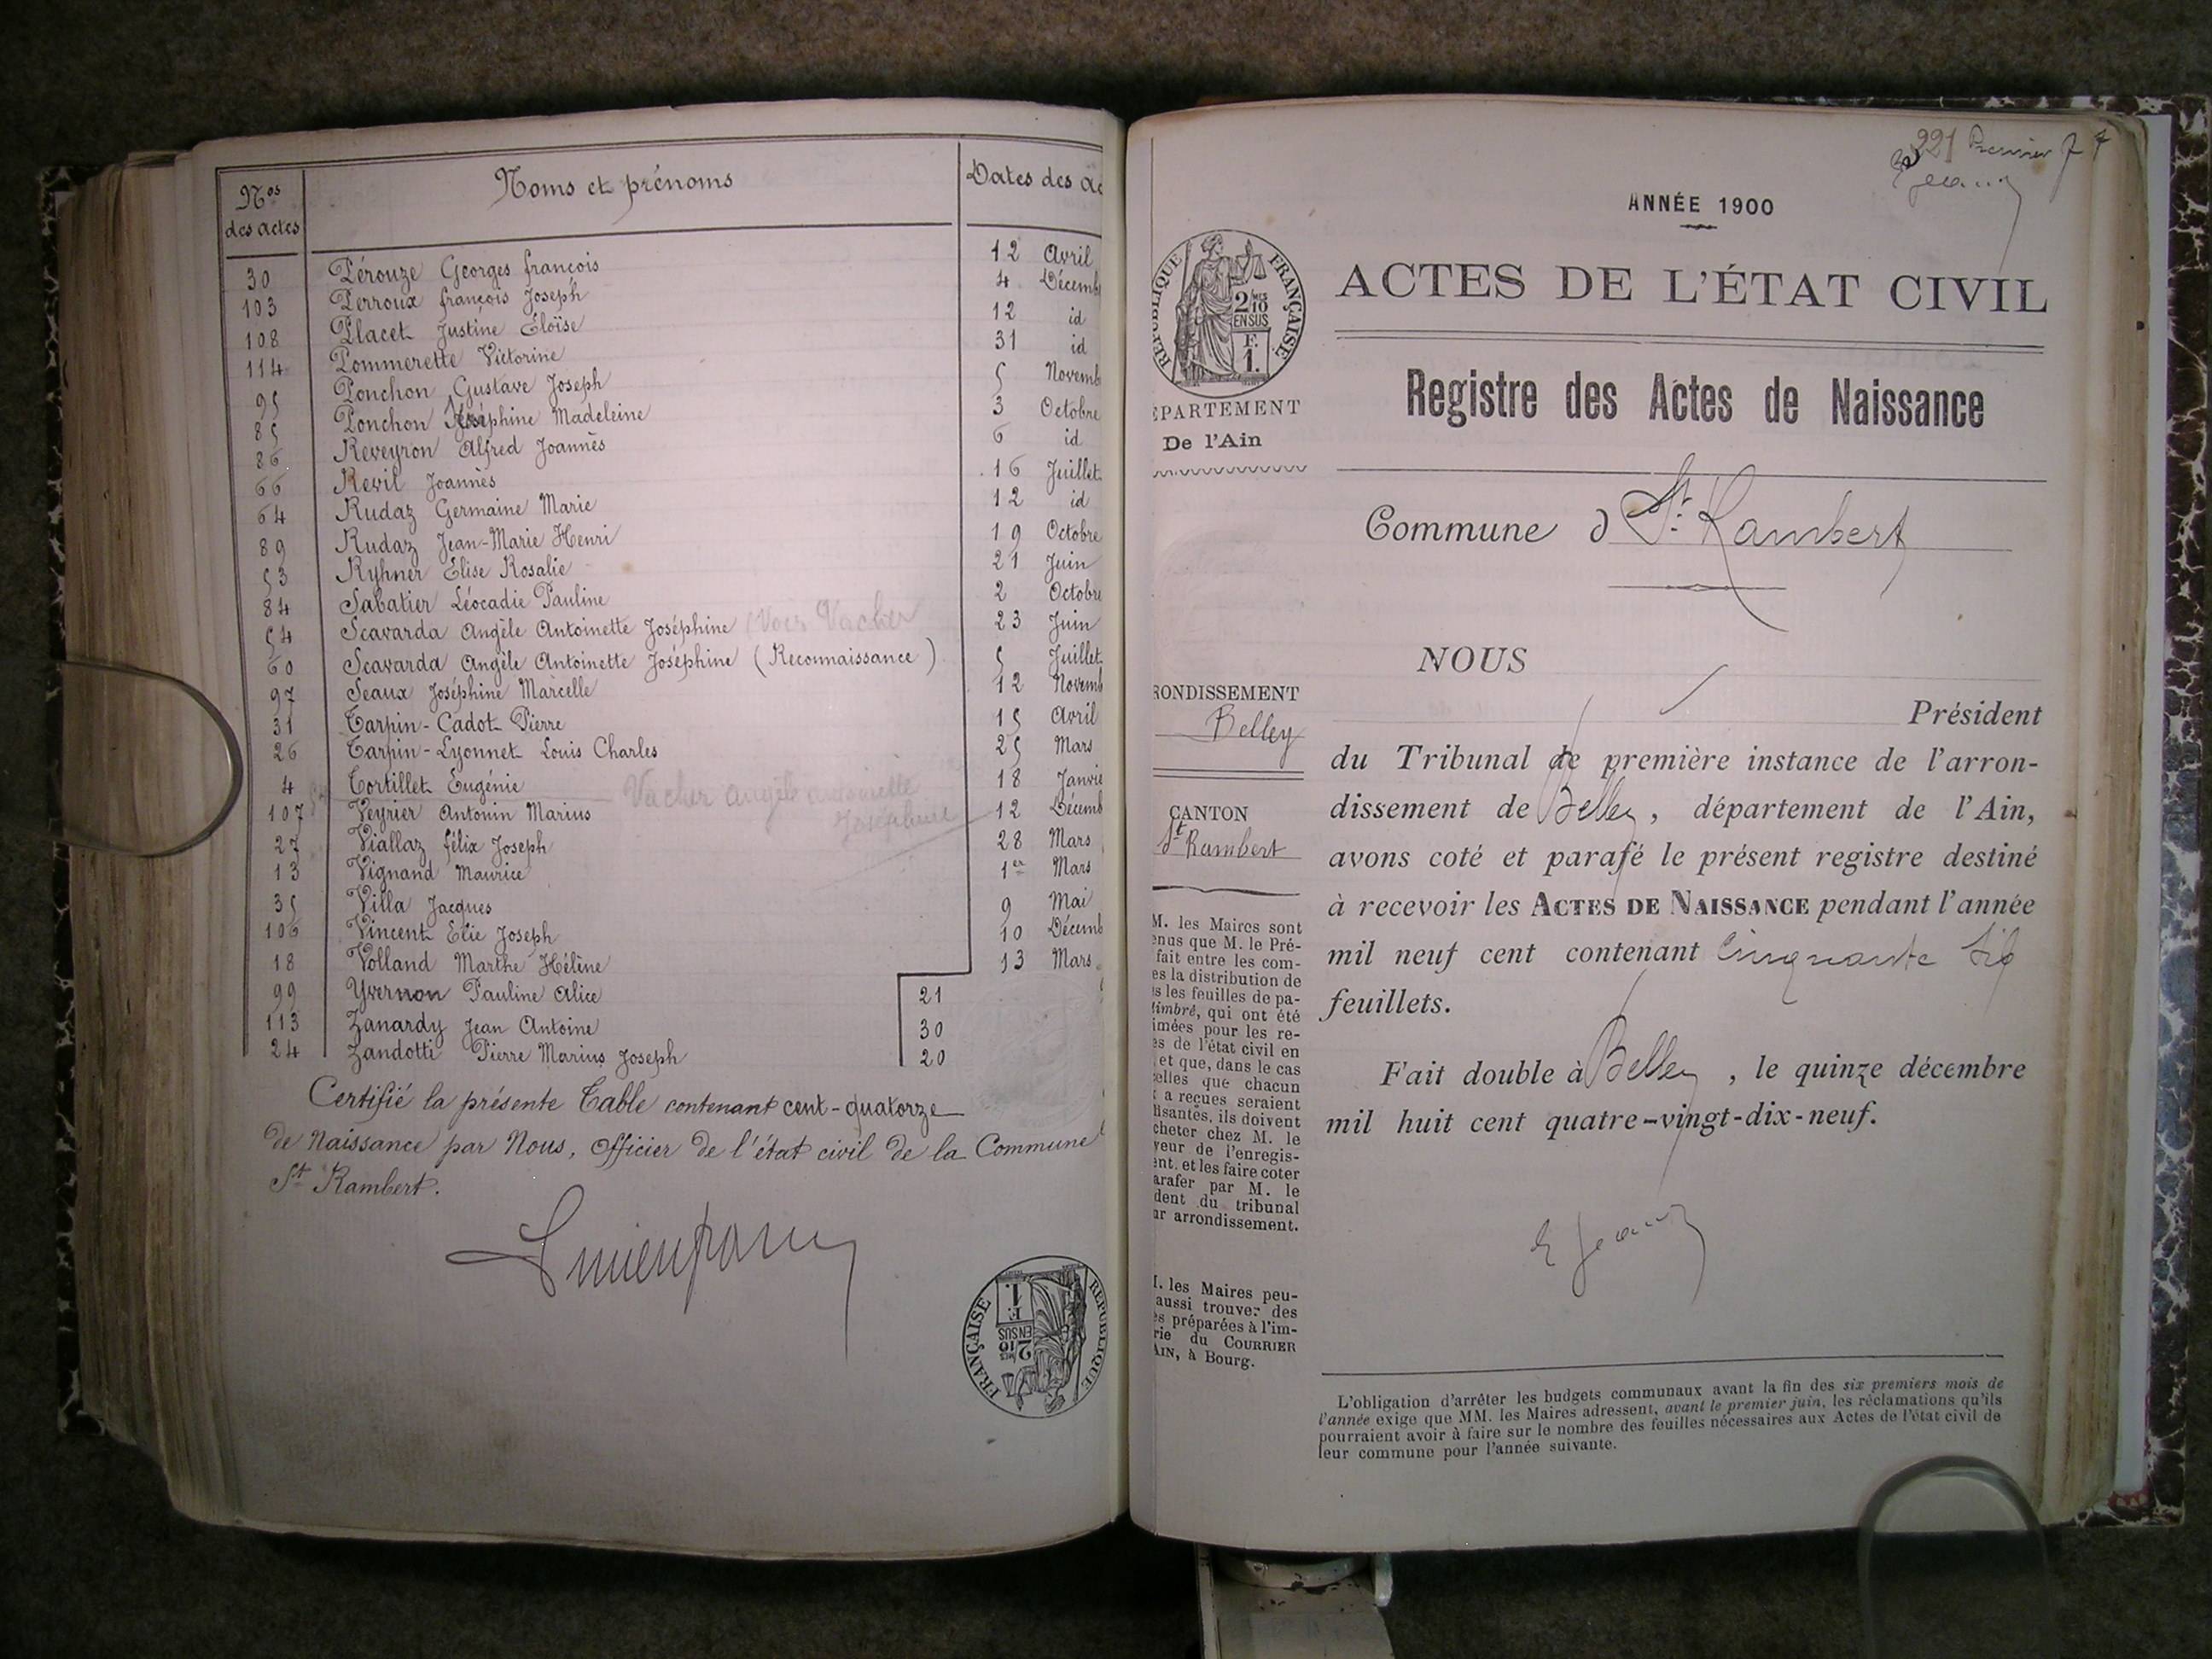 Nos des actes Noms et prénoms Dates des ac
30 Pérouze Georges françois 12 Avril
103 Perroux françois Joseph 4 Décemb
108 Placet Justine Éloïse 12 id
114 Pommerette Victorine 31 id
95 Ponchon Gustave Joseph 5 Novemb
85 Ponchon Joséphine Madeleine 3 Octobre
86 Reveyron Alfred Joannès 6 id
66 Revil Joannès 16 Juillet
64 Rudaz Germaine Marie 12 id
89 Rudaz Jean-Marie Henri 19 Octobre
53 Ryhner Elise Rosalie 21 Juin
84 Sabatier Léocadie Pauline 2 Octobre
54 Scavarda Angèle Antoinette Joséphine (Voir Vacher 23 Juin
60 Scavarda Angèle Antoinette Joséphine (Reconnaissance) 5 Juillet
97 Seaux Joséphine Marcelle 12 Novemb
31 Tarpin-Cadot Pierre 15 Avril
26 Tarpin-Lyonnet Louis Charles 25 Mars
4 Tortillet Eugénie 18 Janvie
Vacher Angèle antoinette
Joséphine
107 Veyrier Antonin Marius 12 Décemb
27 Viallaz félix Joseph 28 Mars
13 Vignand Maurice 1er Mars
35 Villa Jacques 9 Mai
106 Vincent Elie Joseph 10 Décemb
18 Volland Marthe Hélène 13 Mars
99 Yvernon Pauline Alice 21
113 Zanardy Jean Antoine 30
24 Zandotti Pierre Marius Joseph 20
Certifié la présente Table contenant cent-quatorze
de Naissance par Nous, Officier de l'état civil de la Commune
St Rambert.
RÉPUBLIQUE FRANÇAISE
2/10 EN SUS
F. 1.
221 Premier
ANNÉE 1900
ACTES DE L'ÉTAT CIVIL
Registre des Actes de Naissance
Commune d St. Rambert
NOUS
Président
du Tribunal de première instance de l'arron-
dissement de Belley, département de l'Ain,
avons coté et parafé le présent registre destiné
à recevoir les ACTES DE NAISSANCE pendant l'année
mil neuf cent contenant Cinquante six
feuillets.
Fait double à Belley, le quinze décembre
mil huit cent quatre-vingt-dix-neuf.
L'obligation d'arrêter les budgets communaux avant la fin des six premiers mois de
l'année exige que MM. les Maires adressent, avant le premier juin, les réclamations qu'ils
pourraient avoir à faire sur le nombre des feuilles nécessaires aux Actes de l'état civil de
leur commune pour l'année suivante.
RÉPUBLIQUE FRANÇAISE
2/10 EN SUS
F. 1.
ÉPARTEMENT
De l'Ain
RONDISSEMENT
Belley
CANTON
St Rambert
M. les Maires sont
enus que M. le Pré-
fait entre les com-
es la distribution de
s les feuilles de pa-
timbré, qui ont été
imées pour les re-
es de l'état civil en
, et que, dans le cas
celles que chacun
a reçues seraient
fisantes, ils doivent
cheter chez M. le
veur de l'enregis-
ent, et les faire coter
arafer par M. le
dent du tribunal
ur arrondissement.
M. les Maires peu-
aussi trouver des
es préparées à l'im-
rie du COURRIER
AIN, à Bourg.